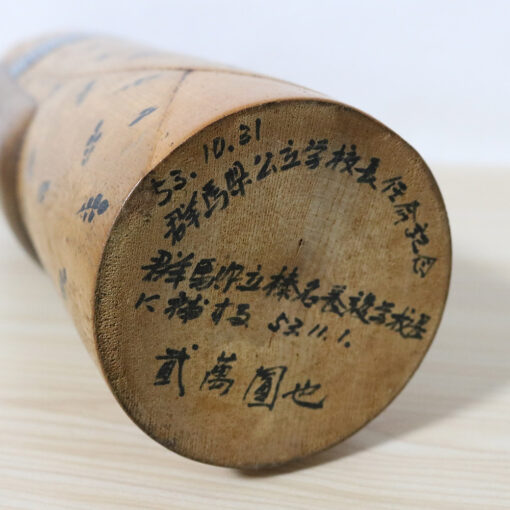 53.10.31
群馬県公立学校長任命記念
群馬県立榛名養護学校長
に補する 53.11.1.
貮萬圓也